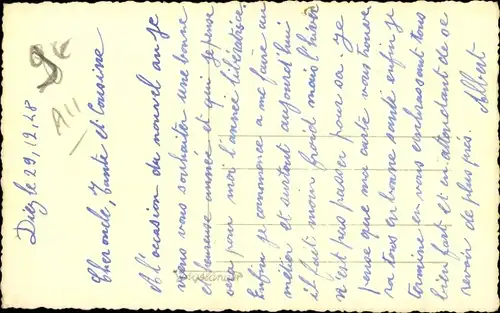 Diez le 29.12.48
Cher oncle, Tante et Cousine
A l'occasion du nouvel an je
viens vous souhaiter une bonne
et heureuse année et qui je pense
sera pour moi l'année libératrice.
Enfin je commence a me faire au
métier et surtout aujourd'hui
il fait moin froid mais l'hiver
n'est pas passer pour sa. Je
pense que ma carte vous trouve
ra tous en bonne santé enfin je
termine en vous embrassant tous
bien fort et en attendant de se
revoir de plus près.
Albert
A11